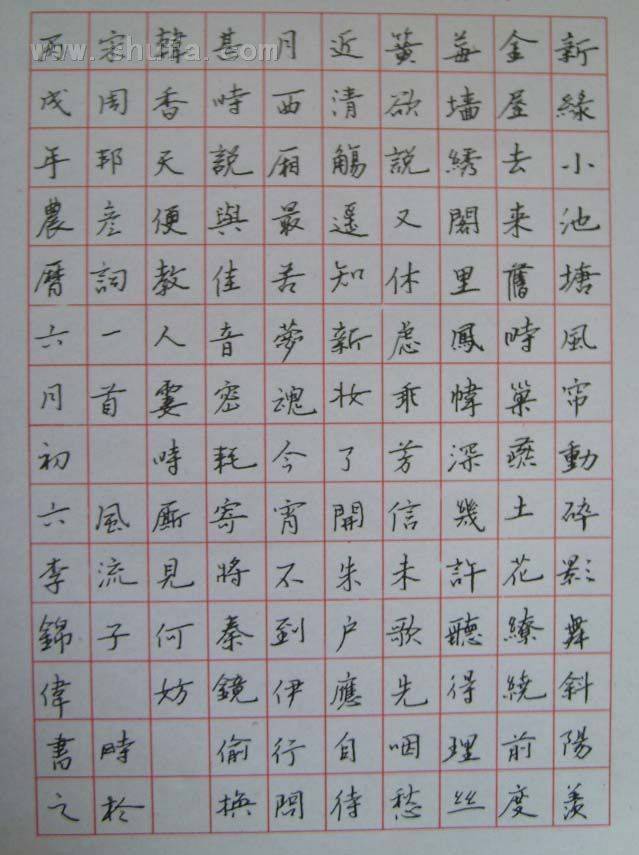 新綠小池塘風帘動碎影舞斜陽羡
金屋去来舊時巢燕土花繚繞前度
莓墙綉閣里鳳幃深幾許聽得理絲
簧欲說又休慮乖芳信未歌先咽愁
近清觴遥知新妆了開朱户應自待
月西厢最苦夢魂今宵不到伊行問
甚時說與佳音密耗寄將秦鏡偷換
韓香天便教人霎時厮見何妨
宋周邦彦詞一首 風流子 時於
丙戌年農曆六月初六李錦偉書之
www.shufa.com